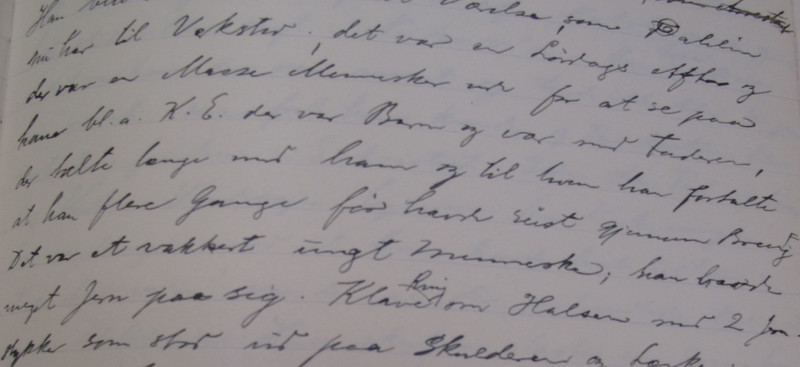 Han
til Vækster, det var en Lördags Efter og
der var en Masse Mennesker ude for at se paa
ham bl. a. K. E. der var Barn og var med Faderen,
der talte længe med ham og til hvem han fortalte
at han flere Gange för havde reist gjennem
Det var et vakkert ungt Menneske; han havde
meget Jern paa sig. Klave ring om Halsen med 2 Jern
stykker som stod ud paa Skulderen og